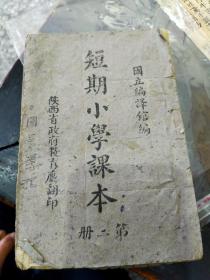 國立編譯館編
短期小學課本
第二册
陝西省政府教育廳翻印